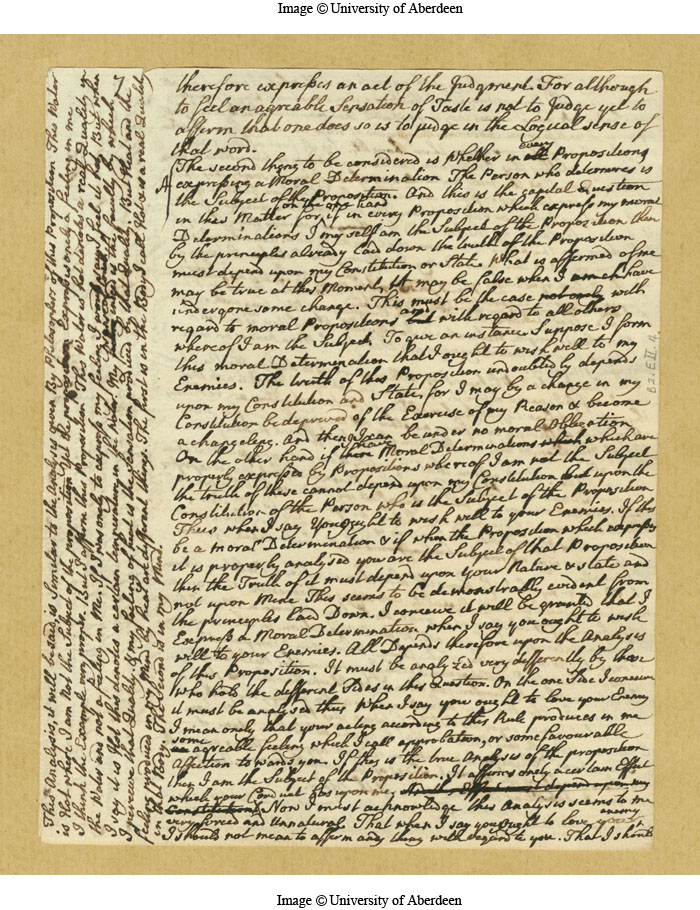 Image © University of Aberdeen
7
therefore expresses an act of the Judgment. For although
to feel an agreable Sensation of Taste is not to Judge yet to
affirm that one does so is to judge in the Logical sense of
that word.
The second thing to be considered is whether in all every Propositions
A expressing a Moral Determination The Person who determines is
the Subject of the Proposition. And this is the capital Question
in this Matter for on the one hand if in every Proposition which express my moral
Determinations I my self am the Subject of the Proposition then
by the principles already laid down the truth of the Proposition
must depend upon my Constitution or State. What is affirmed of me
may be true at this Moment, it may be false when I have
undergone some change. This must be the case not only with
regard to moral Propositions but with regard to all others
whereof I am the Subject. To give an instance Suppose I form
this moral Determination that I ought to wish well to my
Enemies. The truth of this Proposition undoubtedly depends
upon my Constitution and State, for I may by a change in my
Constitution be deprived of the Exercise of my Reason & become
a changeling. And then I can be under no moral Obligation
On the other hand if I have Moral Determinations which which are
properly expressed by Propositions whereof I am not the Subject
the truth of these cannot depend upon my Constitution but upon the
Constitution of the Person who is the Subject of the Proposition
Thus when I say You ought to wish well to your Enemies. If this
be a moral Determination & if when the Proposition which expresses
it is properly analysed you are the Subject of that Proposition
then the Truth of it must depend upon Your Nature & state and
not upon Mine This seems to be demonstrably evident from
the principles laid Down. I conceive it will be granted that I
Express a Moral Determination when I say you ought to wish
will to your Enemies. All Depends therefore upon the Analysis
of this Proposition. It must be analyzed very differently by those
who hold the different Sides in this Question. On the one Side I conceive
it must be analysed thus When I say you ought to love your Enemy
I mean only that your acting according to this Rule produces in me
some agreable feeling which I call approbation, or some favourable
affection towards you. If this is the true Analysis of the proposition
then I am the Subject of the Proposition. It affirms only a certain Effect
which your Conduct has upon me, depend upon my
Constitution Now I must acknowledge this Analysis seems to me
very forced and Unnatural That when I say you ought to love your enemy
I should not mean to affirm any thing with regard to you. That I should
This Analysis, it will be said, is Similar to the Analysis given by Philosophers of this Proposition This Water
is Hot where I am Not the Subject of the proposition yet the proposition Expresses only a feeling in me
I think the Example improper. When I affirm this Proposition This Water is Hot I declare a real Quality of
the Water and not a feeling in Me. If I was only to express my feeling I would say I feel it hot. But when
I say it is Hot this denotes a certain temperature in the Water. My is the faculty by which
I perceive that Quality. & my feeling of heat is the Sensation produced by that Quality. But Heat and the
feeling produced in my Mind by Heat are different things. The first is in the Body I call Hot & is a real Quality
in that body. The Second is in my Mind.
B2.EII.4
Image © University of Aberdeen